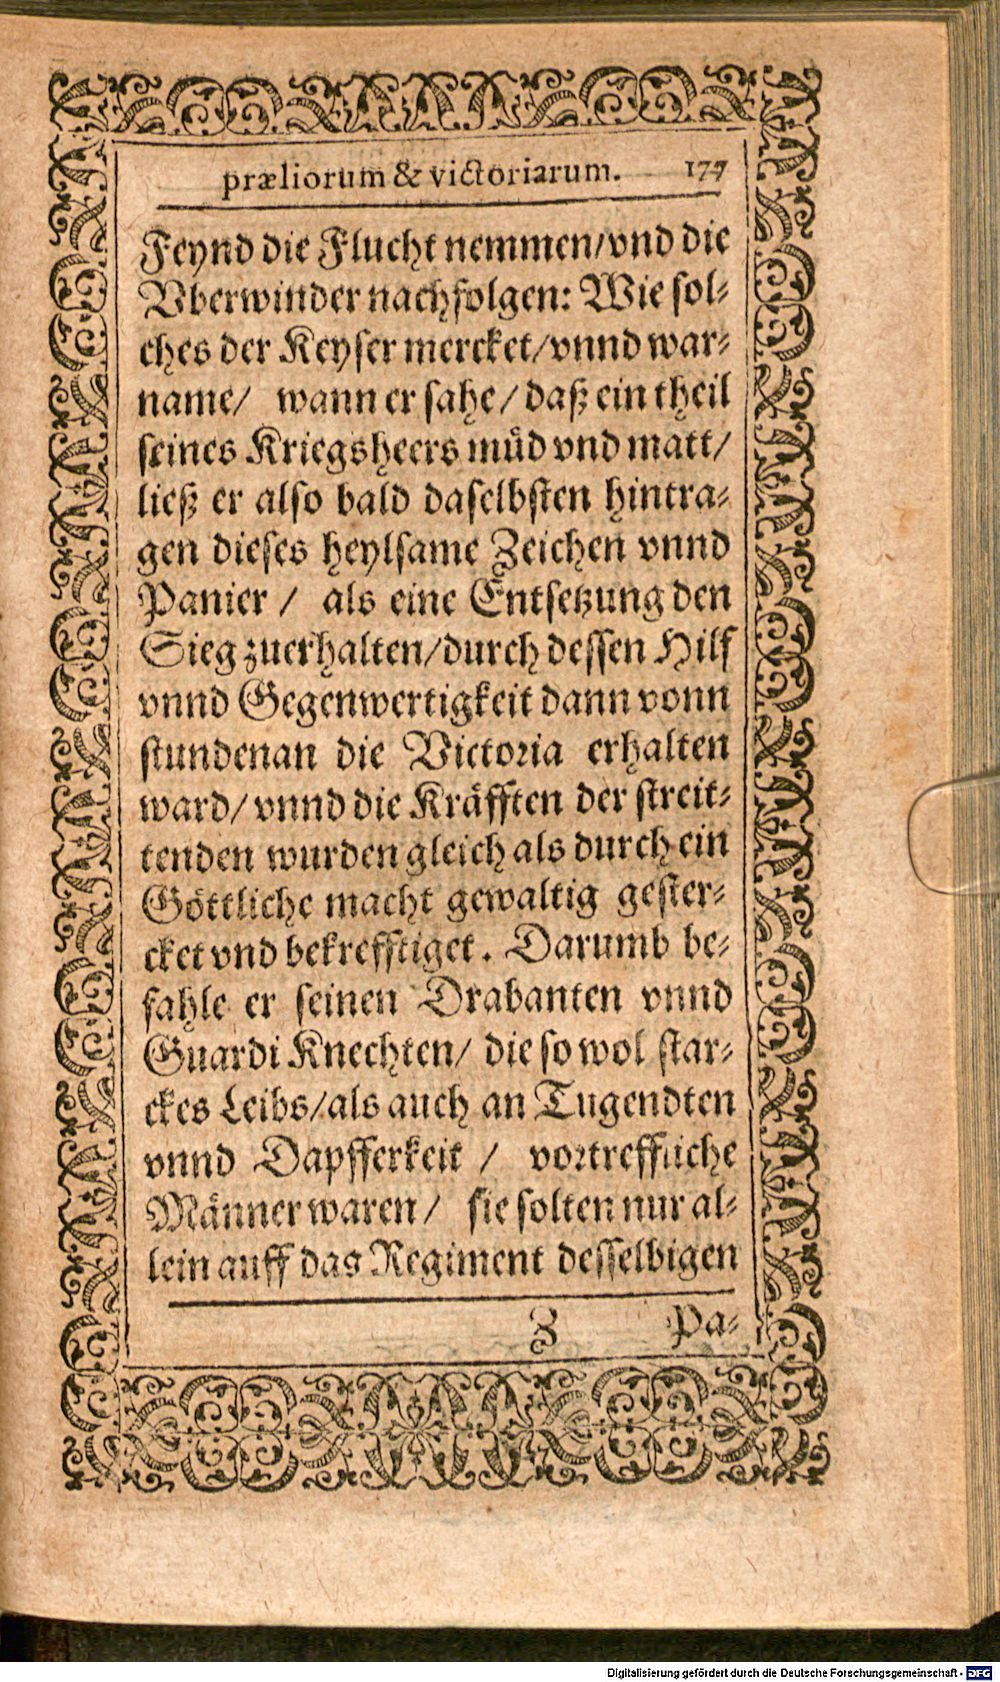 præliorum & victoriarum. 177
Feynd die Flucht nemmen/vnd die
Vberwinder nachfolgen: Wie sol-
ches der Keyser mercket/vnnd war-
name/ wann er sahe/ daß ein theil
seines Kriegsheers müd vnd matt/
ließ er also bald daselbsten hintra-
gen dieses heylsame Zeichen vnnd
Panier / als eine Entsetzung den
Sieg zuerhalten/durch dessen Hilf
vnnd Gegenwertigkeit dann vonn
stundenan die Victoria erhalten
ward/ vnnd die Kräfften der streit-
tenden wurden gleich als durch ein
Göttliche macht gewaltig gester-
cket vnd bekrefftiget. Darumb be-
fahle er seinen Drabanten vnnd
Guardi Knechten/ die so wol star-
ckes Leibs/als auch an Tugendten
vnnd Dapfferkeit / vortreffliche
Männer waren/ sie solten nur al-
lein auff das Regiment desselbigen
Z Pa-
Digitalisierung gefördert durch die Deutsche Forschungsgemeinschaft - DFG